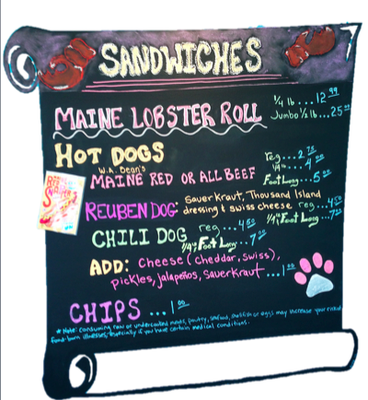 SANDWICHES
MAINE LOBSTER ROLL
1/4 lb...12 99
Jumbo 1/2 lb...25
HOT DOGS
W.A. Bean's
MAINE RED OR ALL BEEF
reg...2 75
1/4 lb...4
Foot Long...5
REUBEN DOG: Sauerkraut, Thousand Island
dressing & swiss cheese reg...4 50
1/4 lb Foot Long...7
CHILI DOG reg...4 50
1/4 lb Foot Long...7
ADD: Cheese (cheddar, swiss),
pickles, jalapeños, sauerkraut...1 00
CHIPS ...1 00
*Note: Consuming raw or undercooked meats, poultry, seafood, shellfish or eggs may increase your risk of
food-born illnesses, especially if you have certain medical conditions.